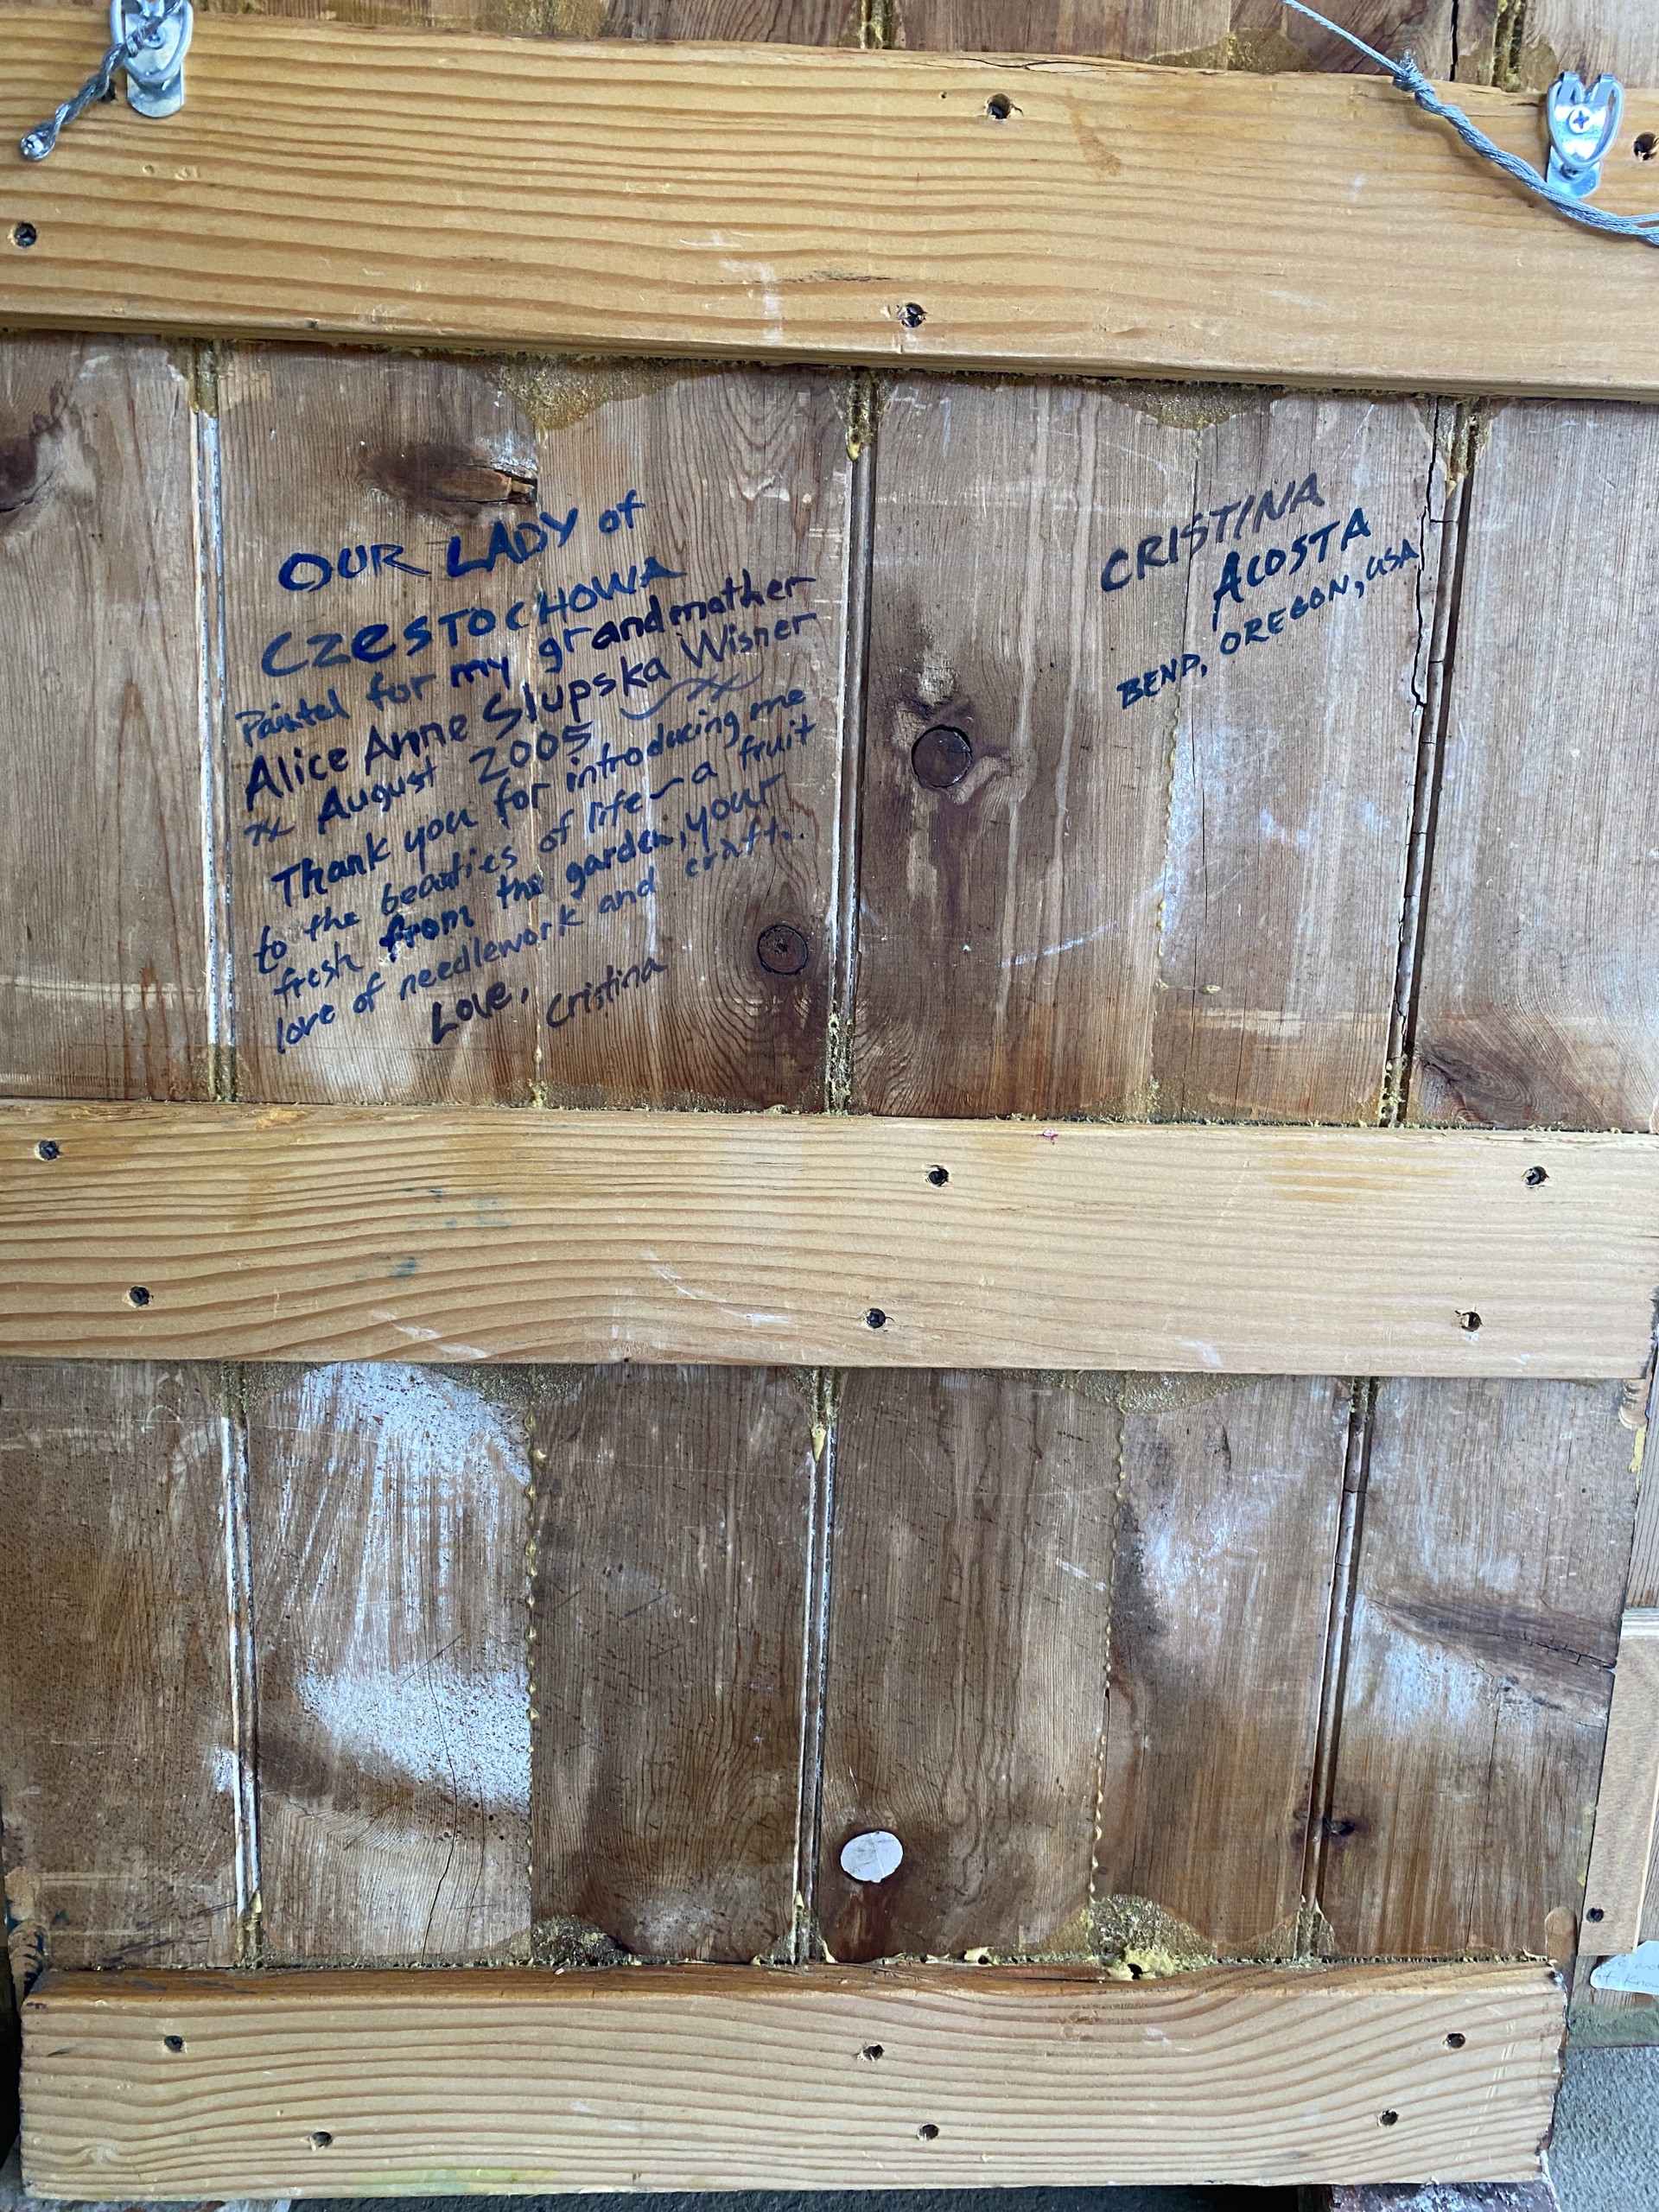 OUR LADY of
CZESTOCHOWA
Painted for my grandmother
Alice Anne Slupska Wisner
August 2005
Thank you for introducing me
to the beauties of life — a fruit
fresh from the garden, your
love of needlework and craft.
Love, Cristina
CRISTINA
ACOSTA
BEND, OREGON, USA